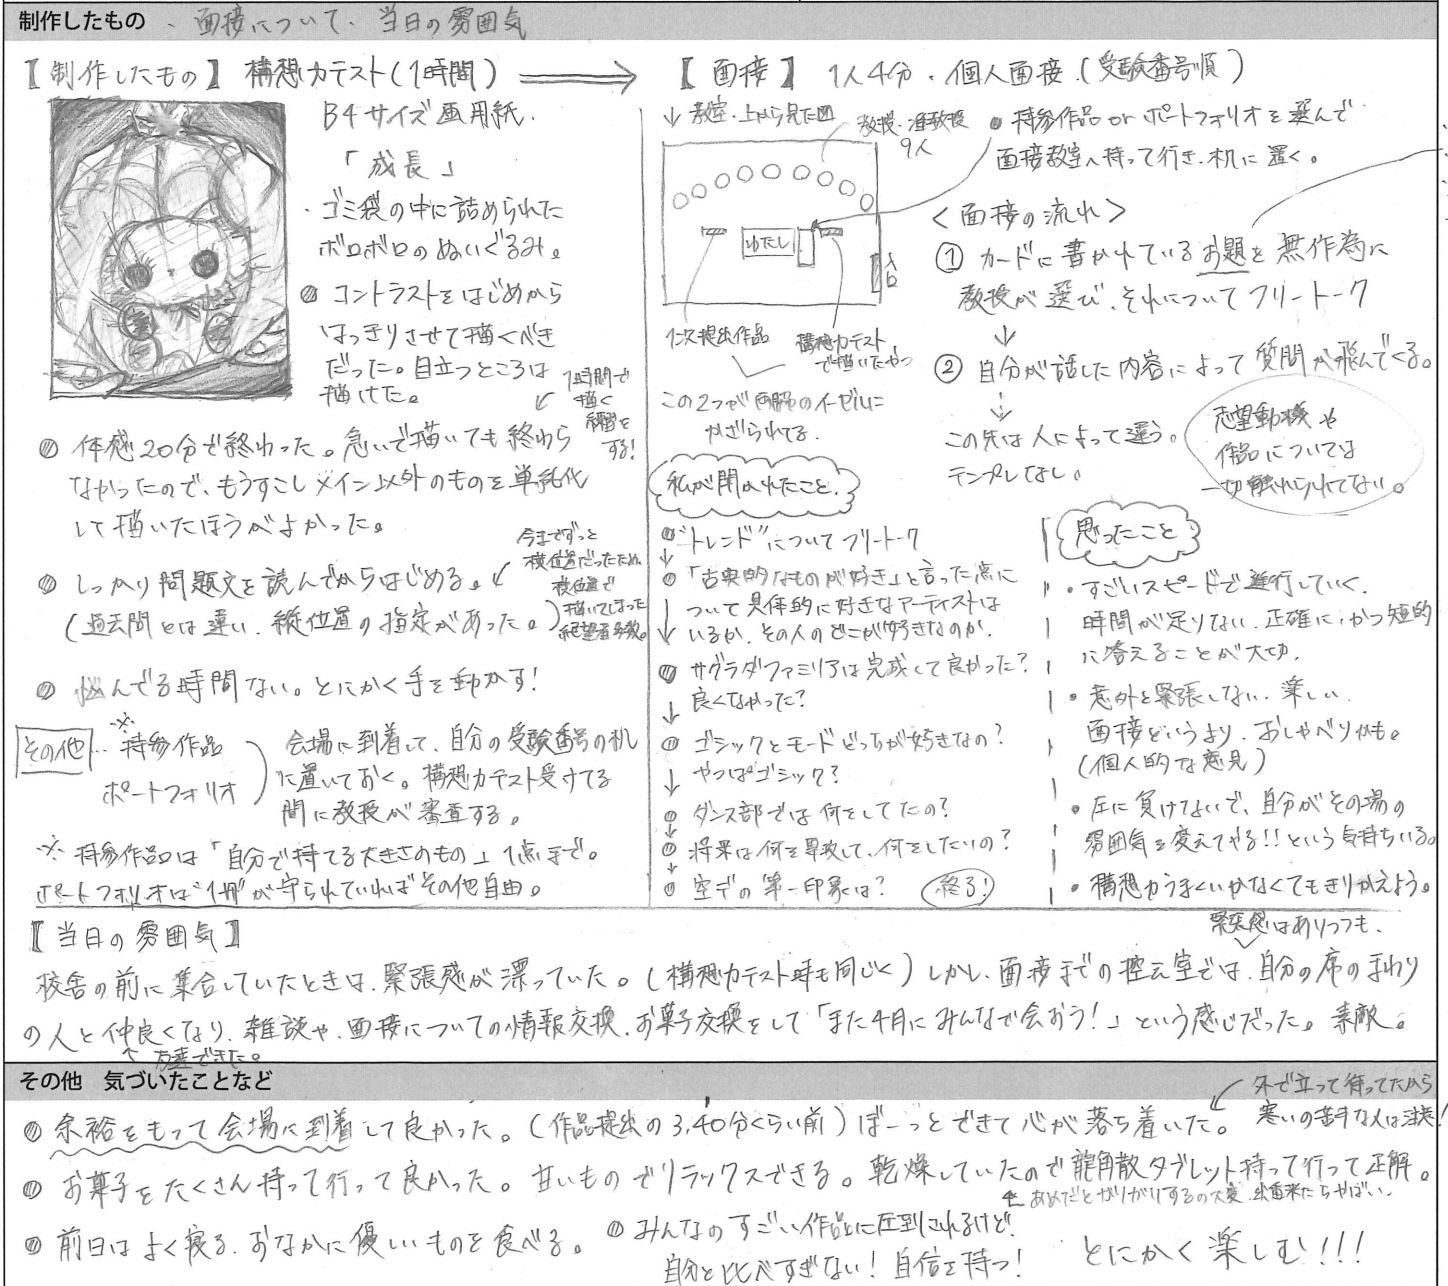 制作したもの ・面接について・当日の雰囲気
【制作したもの】 構想力テスト(1時間)
B4サイズ画用紙.
「成長」
・ゴミ袋の中に詰められた
ボロボロのぬいぐるみ。
コントラストをはじめから
はっきりさせて描くべき
だった。目立つところは
描けた。
1時間で
描く
練習を
する!
体感20分で終わった。急いで描いても終わら
なかったので、もうすこしメイン以外のものを単純化
して描いたほうがよかった。
しっかり問題文を読んでからはじめる。
(過去問とは違い、縦位置の指定があった。)
今までずっと
横位置だったため、
横位置で
描いてしまった
絶望者多数。
悩んでる時間ない。とにかく手を動かす!
その他 … ※持参作品
ポートフォリオ
会場に到着して、自分の受験番号の机
に置いておく。構想力テスト受けてる
間に教授が審査する。
※ 持参作品は「自分で持てる大きさのもの」1点まで。
ポートフォリオは"1冊"が守られていればその他自由。
【面接】 1人4分・個人面接.(受験番号順)
↓教室・上から見た図
教授・准教授
9人
わたし
入口
1次提出作品
構想力テスト
で描いたやつ
この2つが両脇のイーゼルに
かざられてる.
持参作品orポートフォリオを選んで
面接教室へ持って行き、机に置く。
<面接の流れ>
① カードに書かれているお題を無作為に
教授が選び、それについてフリートーク
② 自分が話した内容によって質問が飛んでくる。
この先は人によって違う。
テンプレなし。
志望動機や
作品については
一切触れられてない。
私が聞かれたこと.
"トレンド"についてフリートーク
「古典的なものが好き」と言った点に
ついて具体的に好きなアーティストは
いるか、その人のどこが好きなのか.
サグラダファミリアは完成して良かった?
良くなかった?
ゴシックとモードどっちが好きなの?
やっぱゴシック?
ダンス部では何をしてたの?
将来は何を専攻して、何をしたいの?
空デの第一印象は? 終了!
思ったこと
・すごいスピードで進行していく.
時間が足りない. 正確に、かつ短的
に答えることが大切.
・意外と緊張しない. 楽しい.
面接というより、おしゃべりかも。
(個人的な意見)
・圧に負けてないで、自分がその場の
雰囲気を変えてやる!!という気持ちいる。
・構想力うまくいかなくてもきりかえよう。
【当日の雰囲気】
緊張感はありつつも、
校舎の前に集合していたときは、緊張感が漂っていた。(構想力テスト時も同じく)しかし、面接までの控え室では、自分の席のまわり
の人と仲良くなり、雑談や、面接についての情報交換、お菓子交換をして「また4月にみんなで会おう!」という感じだった。素敵。
その他 気づいたことなど
余裕をもって会場に到着して良かった。(作品提出の3,40分くらい前)ぼーっとできて心が落ち着いた。
外で立って待ってたから
寒いの苦手な人は注意!
お菓子をたくさん持って行って良かった。甘いものでリラックスできる。乾燥していたので龍角散タブレット持って行って正解。
前日はよく寝る. おなかに優しいものを食べる。
みんなのすごい作品に圧倒されるけど、
自分と比べすぎない! 自信を持つ!
とにかく楽しむ!!!